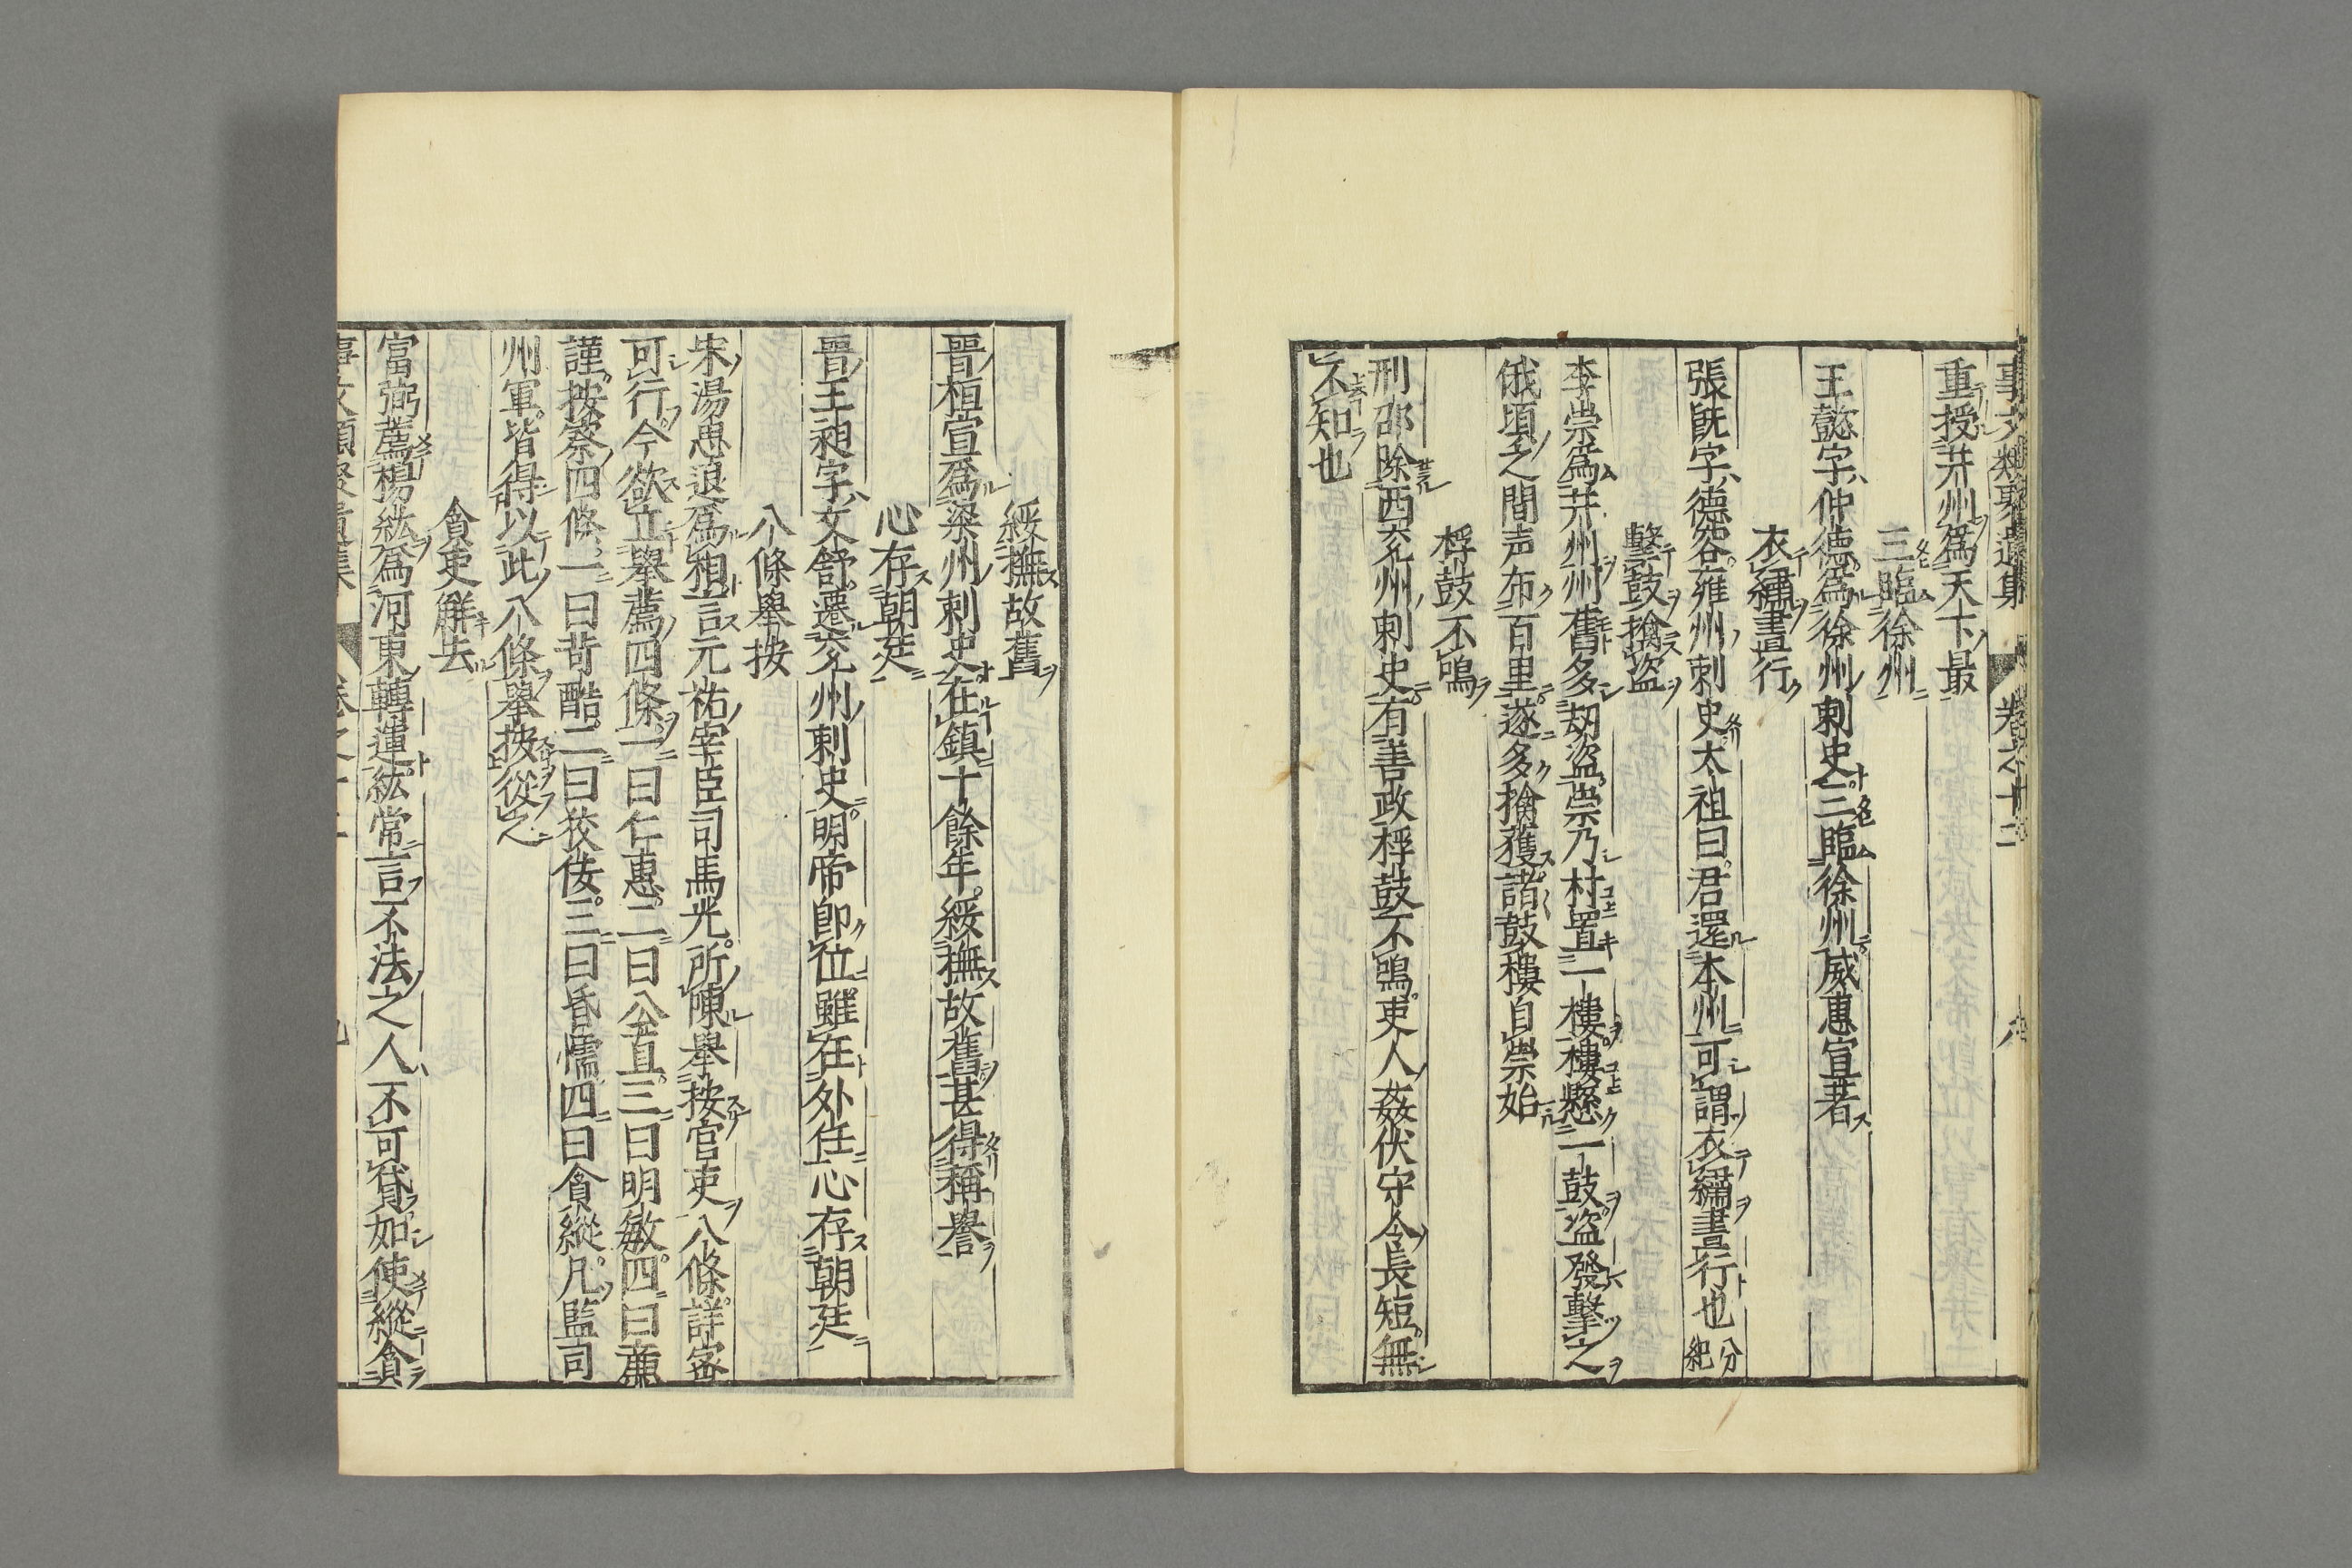 事文類聚遺集 卷之十二 八
重授并州爲天下最
三臨徐州
王懿字仲德爲徐州刺史三臨徐州威惠宣著
衣繡晝行
張既字德容雍州刺史太祖曰君還本州可謂衣繡晝行也分紀
擊鼓擒盗
李崇爲并州州舊多刼盗崇乃村置一樓樓懸一鼓盗發擊之
俄頃之間声布百里遂多擒獲諸鼓樓自崇始
桴鼓不鳴
刑邵除西兖州刺史有善政桴鼓不鳴吏人姦伏守令長短無
不知也
綏撫故舊
晉桓宣爲梁州刺史在鎮十餘年綏撫故舊甚得稱譽
心存朝廷
晉王昶字文舒遷兖州刺史明帝即位雖在外任心存朝廷
八條舉按
宋湯思退爲相言元祐宰臣司馬光所陳舉按官吏八條詳密
可行今欲立舉薦四條一曰仁惠二曰公直三曰明敏四曰廉
謹按察四條一曰苛酷二曰狡佞三曰昏懦四曰貪縱凡監司
州軍皆得以此八條舉按從之
貪吏解去
富弼薦楊紘爲河東轉運紘常言不法之人不可貸如使縱貪
事文類聚遺集 卷之十二 九